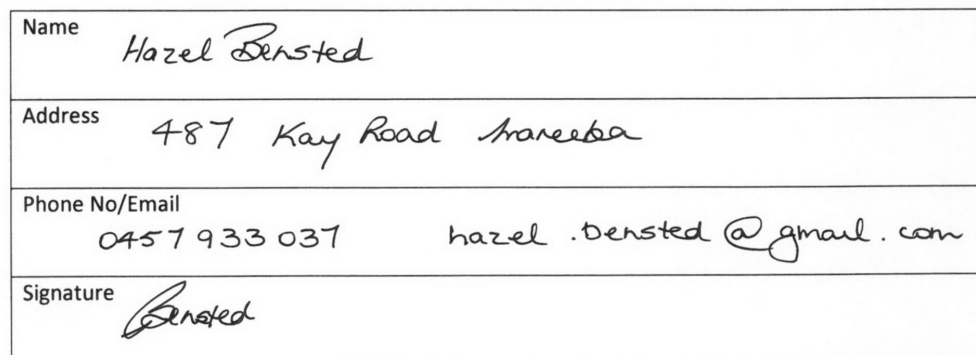 Name
Hazel Bensted
Address
487 Kay Road Mareeba
Phone No/Email
0457 933 037 hazel.bensted@gmail.com
Signature
Bensted